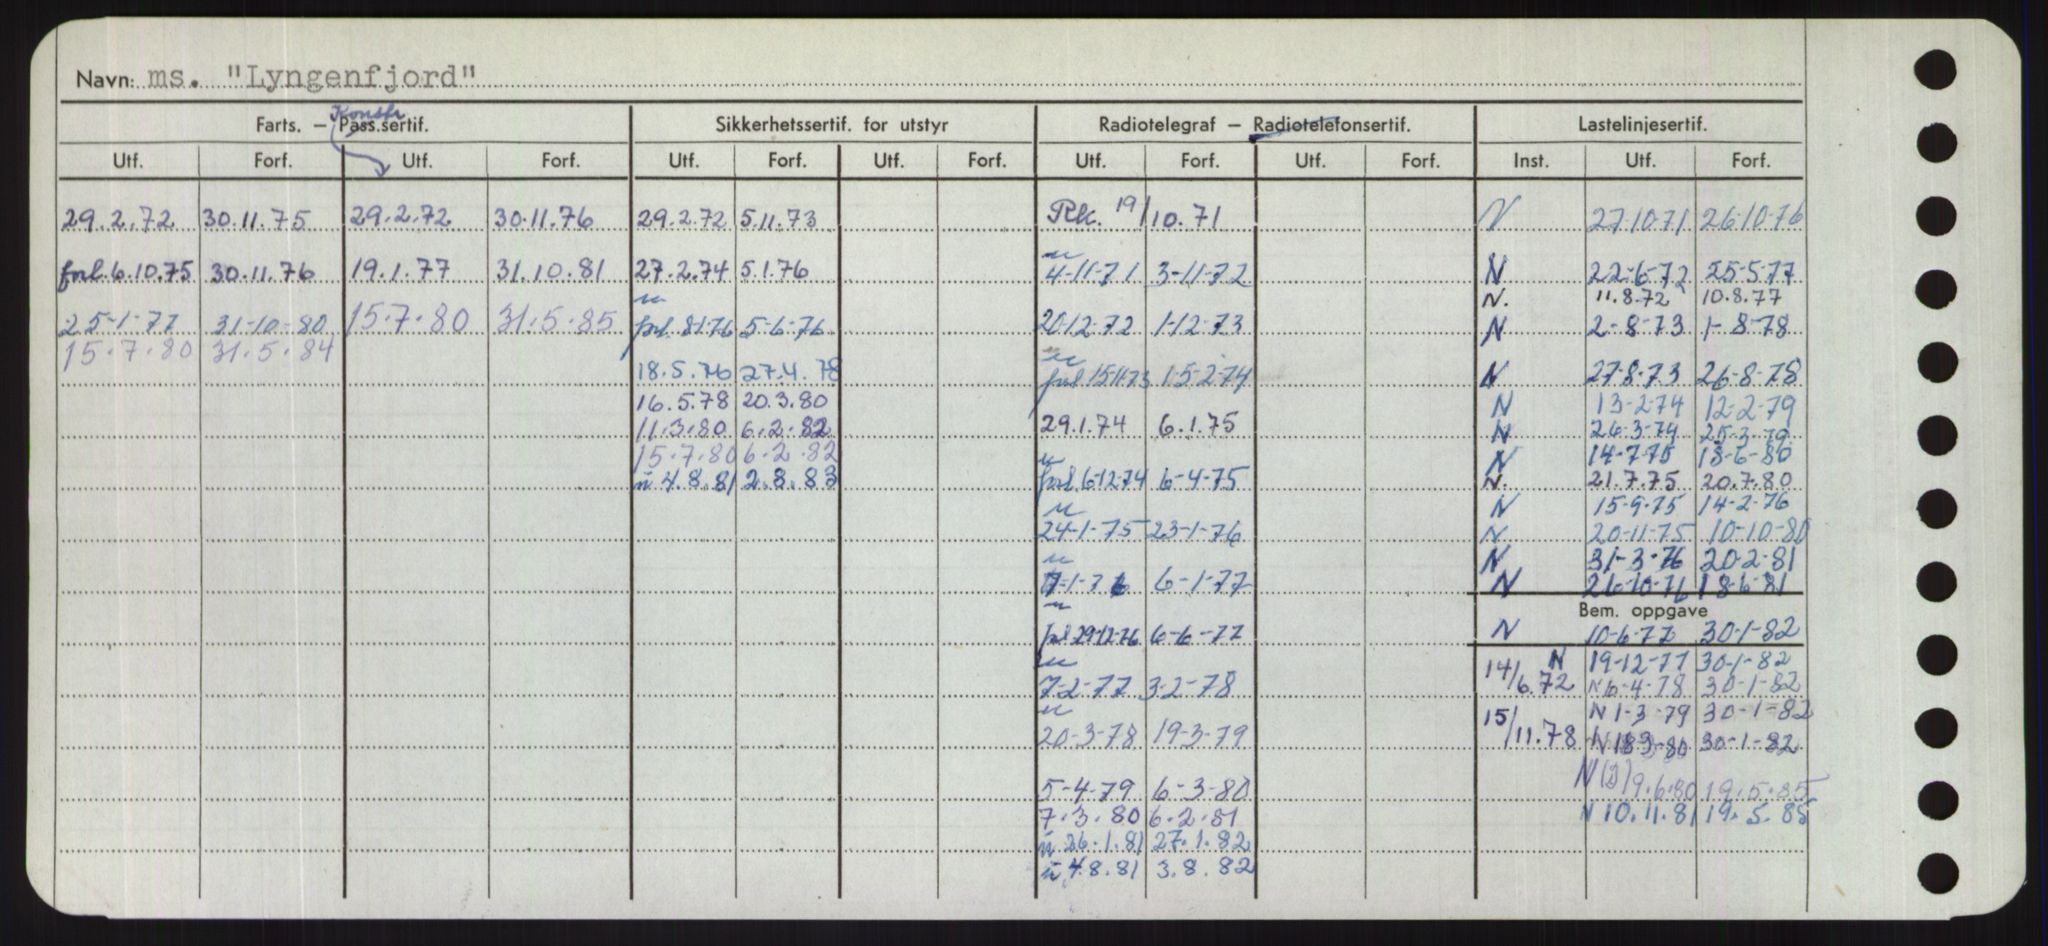 Navn: ms. "Lyngenfjord"
Konstr
Farts. — Pass.sertif. Sikkerhetssertif. for utstyr Radiotelegraf — Radiotelefonsertif. Lastelinjesertif.
Utf. Forf. Utf. Forf. Utf. Forf. Utf. Forf. Utf. Forf. Utf. Forf. Inst. Utf. Forf.
29.2.72 30.11.75 29.2.72 30.11.76 29.2.72 5.11.73 Rk. 19/10.71 N 27-10-71 26-10-76
forl. 6.10.75 30.11.76 19.1.77 31.10.81 27.2.74 5.1.76 4-11-71 3-11-72 N 22-6-72 25-5-77
N. 11.8.72 10.8.77
25-1-77 31-10-80 15.7.80 31.5.85 forl. 8-1-76 5-6-76 20-12-72 1-12-73 N 2-8-73 1-8-78
15.7.80 31.5.84
18.5.76 27.4.78 forl 15-11-73 15-2-74 N 27-8-73 26-8-78
16.5.78 20.3.80 N 13-2-74 12-2-79
11.3.80 6.2.82 29.1.74 6.1.75 N 26-3-74 25-3-79
15.7.80 6.2.82 N 14-7-75 18-6-80
u 4.8.81 2.8.83 forl 6-12-74 6-4-75 N. 21.7.75 20.7.80
N 15-9-75 14-2-76
24-1-75 23-1-76 N 20-11-75 10-10-80
N 31-3-76 20-2-81
7-1-76 6-1-77 N 26-10-76 18-6-81
Bem. oppgave
forl 29-12-76 6-6-77 N 10-6-77 30-1-82
14/6.72 N 19-12-77 30-1-82
7-2-77 3-2-78 N 6-4-78 30-1-82
15/11.78 N 1-3-79 30-1-82
20-3-78 19-3-79 N 18-3-80 30-1-82
5-4-79 6-3-80 N(D) 9.6.80 19.5.85
7.3.80 6.2.81 N 10.11.81 19.5.85
u 26.1.81 27.1.82
u 4.8.81 3.8.82